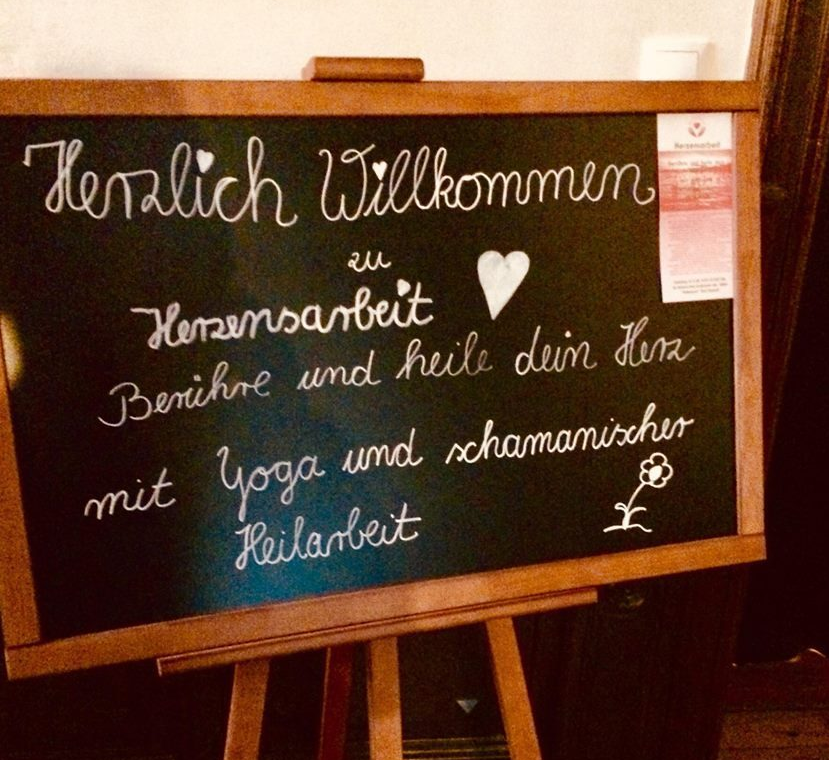 Herzlich Willkommen
zu
Herzensarbeit
Berühre und heile dein Herz
mit Yoga und schamanischer
Heilarbeit
Herzensarbeit